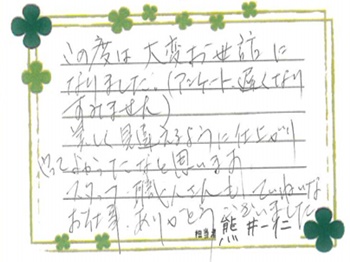 この度は大変お世話に
なりました。(アンケート、遅くなり
すみません)
美しく見違えるように仕上がり
やってよかったなと思います
スタッフ、職人さんも、ていねいな
お仕事、ありがとうございました
担当者 熊井